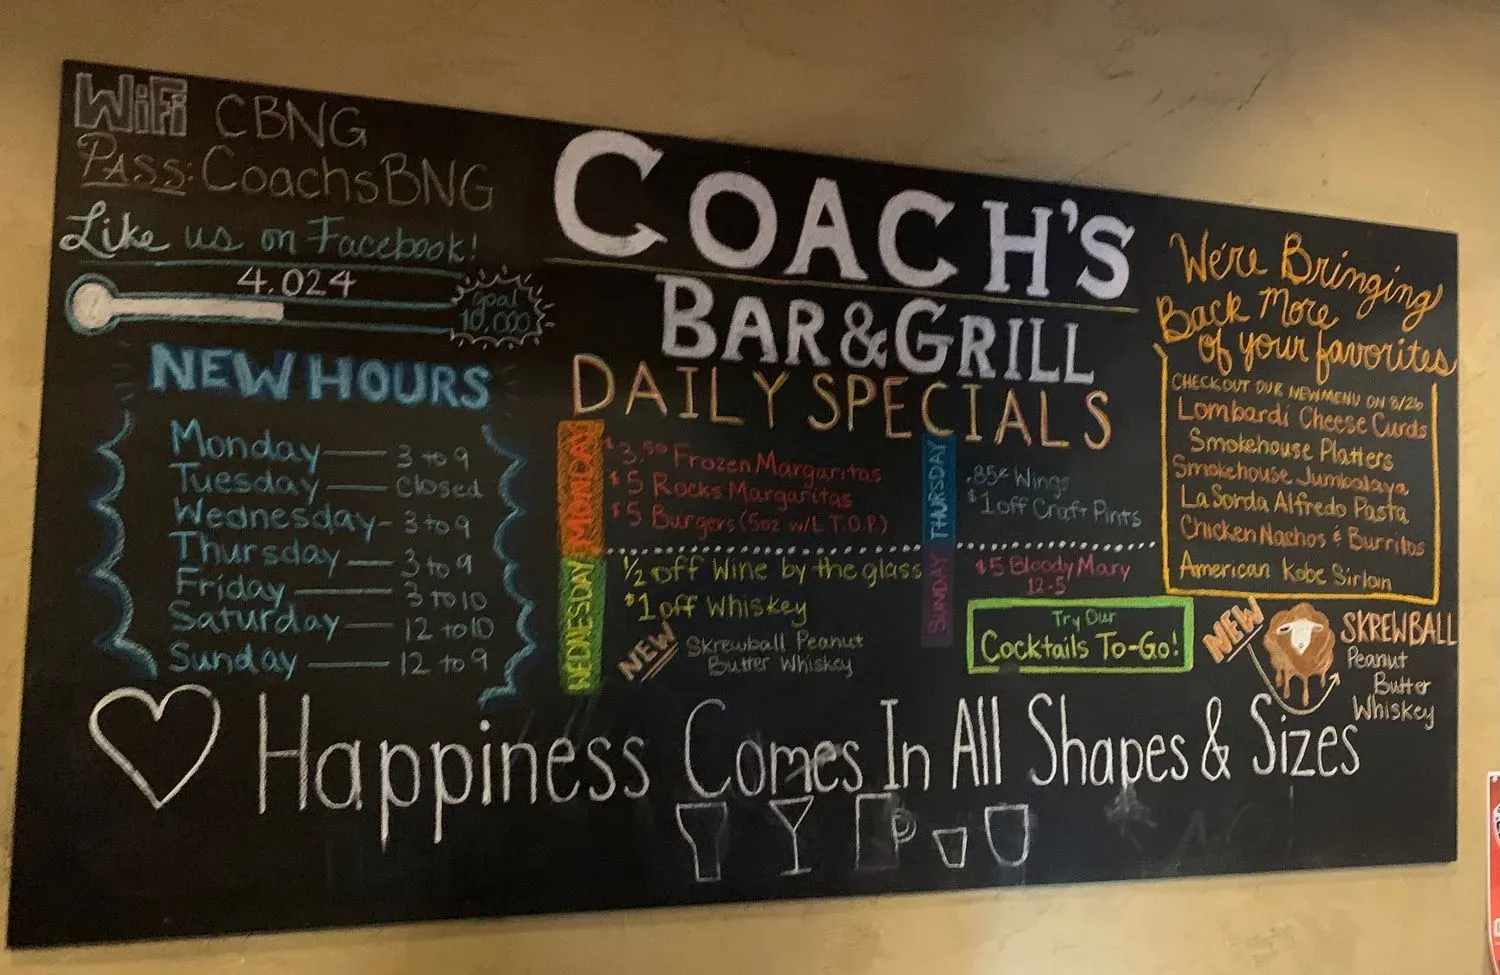 WiFi CBNG
Pass: CoachsBNG
Like us on Facebook!
4,024
Goal
10,000
NEW HOURS
Monday — 3 to 9
Tuesday — closed
Wednesday - 3 to 9
Thursday — 3 to 9
Friday — 3 to 10
Saturday — 12 to 10
Sunday — 12 to 9
COACH'S
BAR & GRILL
DAILY SPECIALS
MONDAY
$3.50 Frozen Margaritas
$5 Rocks Margaritas
$5 Burgers (5oz w/L.T.O.P.)
WEDNESDAY
1/2 off Wine by the glass
$1 off Whiskey
NEW
Skrewball Peanut
Butter Whiskey
THURSDAY
.85¢ Wings
$1 off Craft Pints
SUNDAY
$5 Bloody Mary
12-5
Try Our
Cocktails To-Go!
We're Bringing
Back More
of your favorites
CHECKOUT OUR NEW MENU ON 8/26
Lombardi Cheese Curds
Smokehouse Platters
Smokehouse Jumbalaya
LaSorda Alfredo Pasta
Chicken Nachos & Burritos
American Kobe Sirloin
NEW
SKREWBALL
Peanut
Butter
Whiskey
Happiness Comes In All Shapes & Sizes